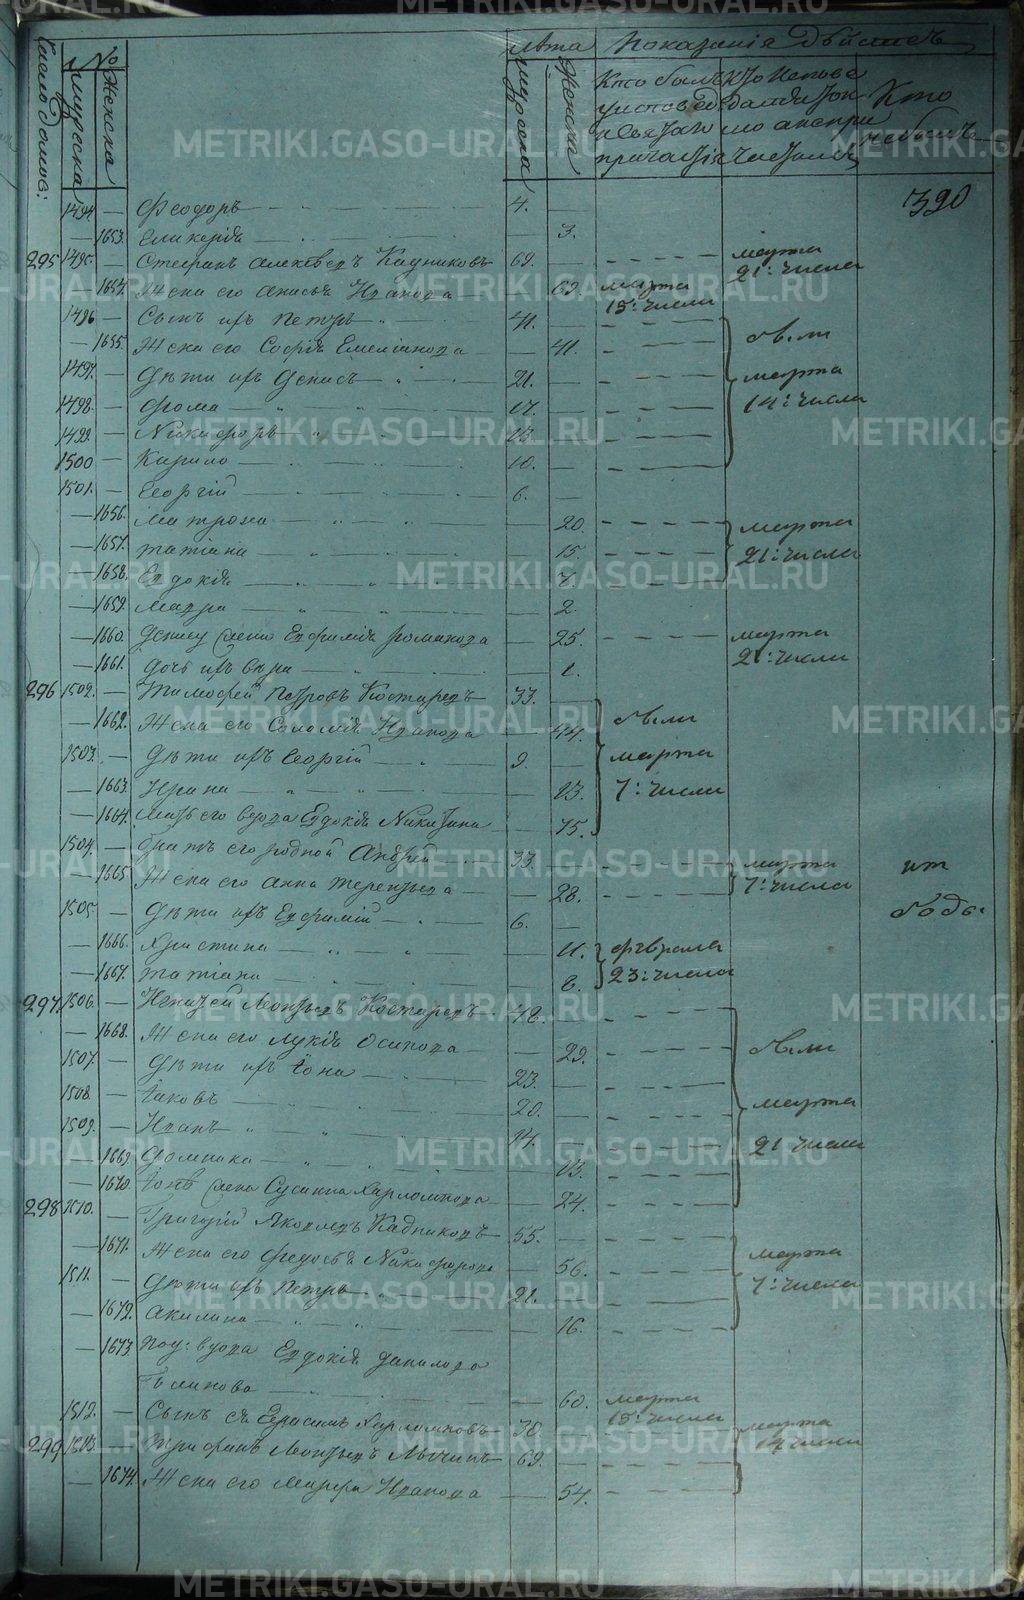 Число домовъ:
№
Мужеска
Женска
лѣта
Мужеска
Женска
Показанія Дѣйствъ
Кто былъ
у исповѣди
и святаго
причастія
Кто исповѣ
дался ток
мо а не при
частилс
Кто
небылъ
390
1494. — Феодоръ — 4. —
— 1653. Гликерія — 3.
295 1495. — Стефанъ Алексѣевъ Кадниковъ — 69. — марта
21: числа
— 1654. Жена его Анисья Иванова — 69. марта
15: числа
1496 — Сынъ ихъ Петръ — 41. —
— 1655. Жена его Софія Емеліанова — 41. были
1497. — Дѣти ихъ Денисъ — 21. — марта
1498. — Фома — 17. — 14: числа
1499. — Никифоръ — 13. —
1500 — Кирило — 10. —
1501. — Георгій — 6. —
— 1656. Матрона — 20. марта
— 1657. Татіана — 15. 21: числа
— 1658. Евдокія — 7.
— 1659. Мавра — 2.
— 1660. Денису жена Евфимія Романова — 25. марта
21: числа
— 1661. Дочь ихъ Вѣра — 1.
296 1502. — Тимофей Петровъ Костаревъ — 33. —
— 1662. Жена его Соломія Иванова — 44. были
1503. — Дѣти ихъ Георгій — 9. — марта
— 1663. Ирина — 13. 7: числа
— 1664. Мать его вдова Евдокія Никитина — 75.
1504. — братъ его родной Андрей — 33. — марта
— 1665. Жена его Анна Терентьева — 28. 7: числа
1505. — Дѣти ихъ Евфимій — 6. —
— 1666. Христина — 11. февраля
— 1667. Татіана — 23: числа
297 1506. — Леонтьевъ Костаревъ — 48. —
— 1668. Жена его Лукія Осипова — 29. были
1507. — Дѣти ихъ Іона — 23. —
1508. — Іаковъ — 20. — марта
1509. — Иванъ — 14. — 21 числа
— 1669. Домника — 13.
— 1670. жена Сусанна Харлампова — 24.
298 1510. — Григорій Яковлевъ Кадниковъ — 55. —
— 1671. Жена его Федосья Никифорова — 56. марта
1511. — Дѣти ихъ Петръ — 21. — 7: числа
— 1672. Акилина — 16.
— 1673. вдова Евдокія Данилова
— 60. марта
15: числа
1512. — Сынъ ея Герасимъ Харламповъ — 30. — марта
299 1513. — Трифанъ Леонтьевъ — 69. — 14 числа
— 1674. Жена его Марфа Иванова — 54.
METRIKI.GASO-URAL.RU